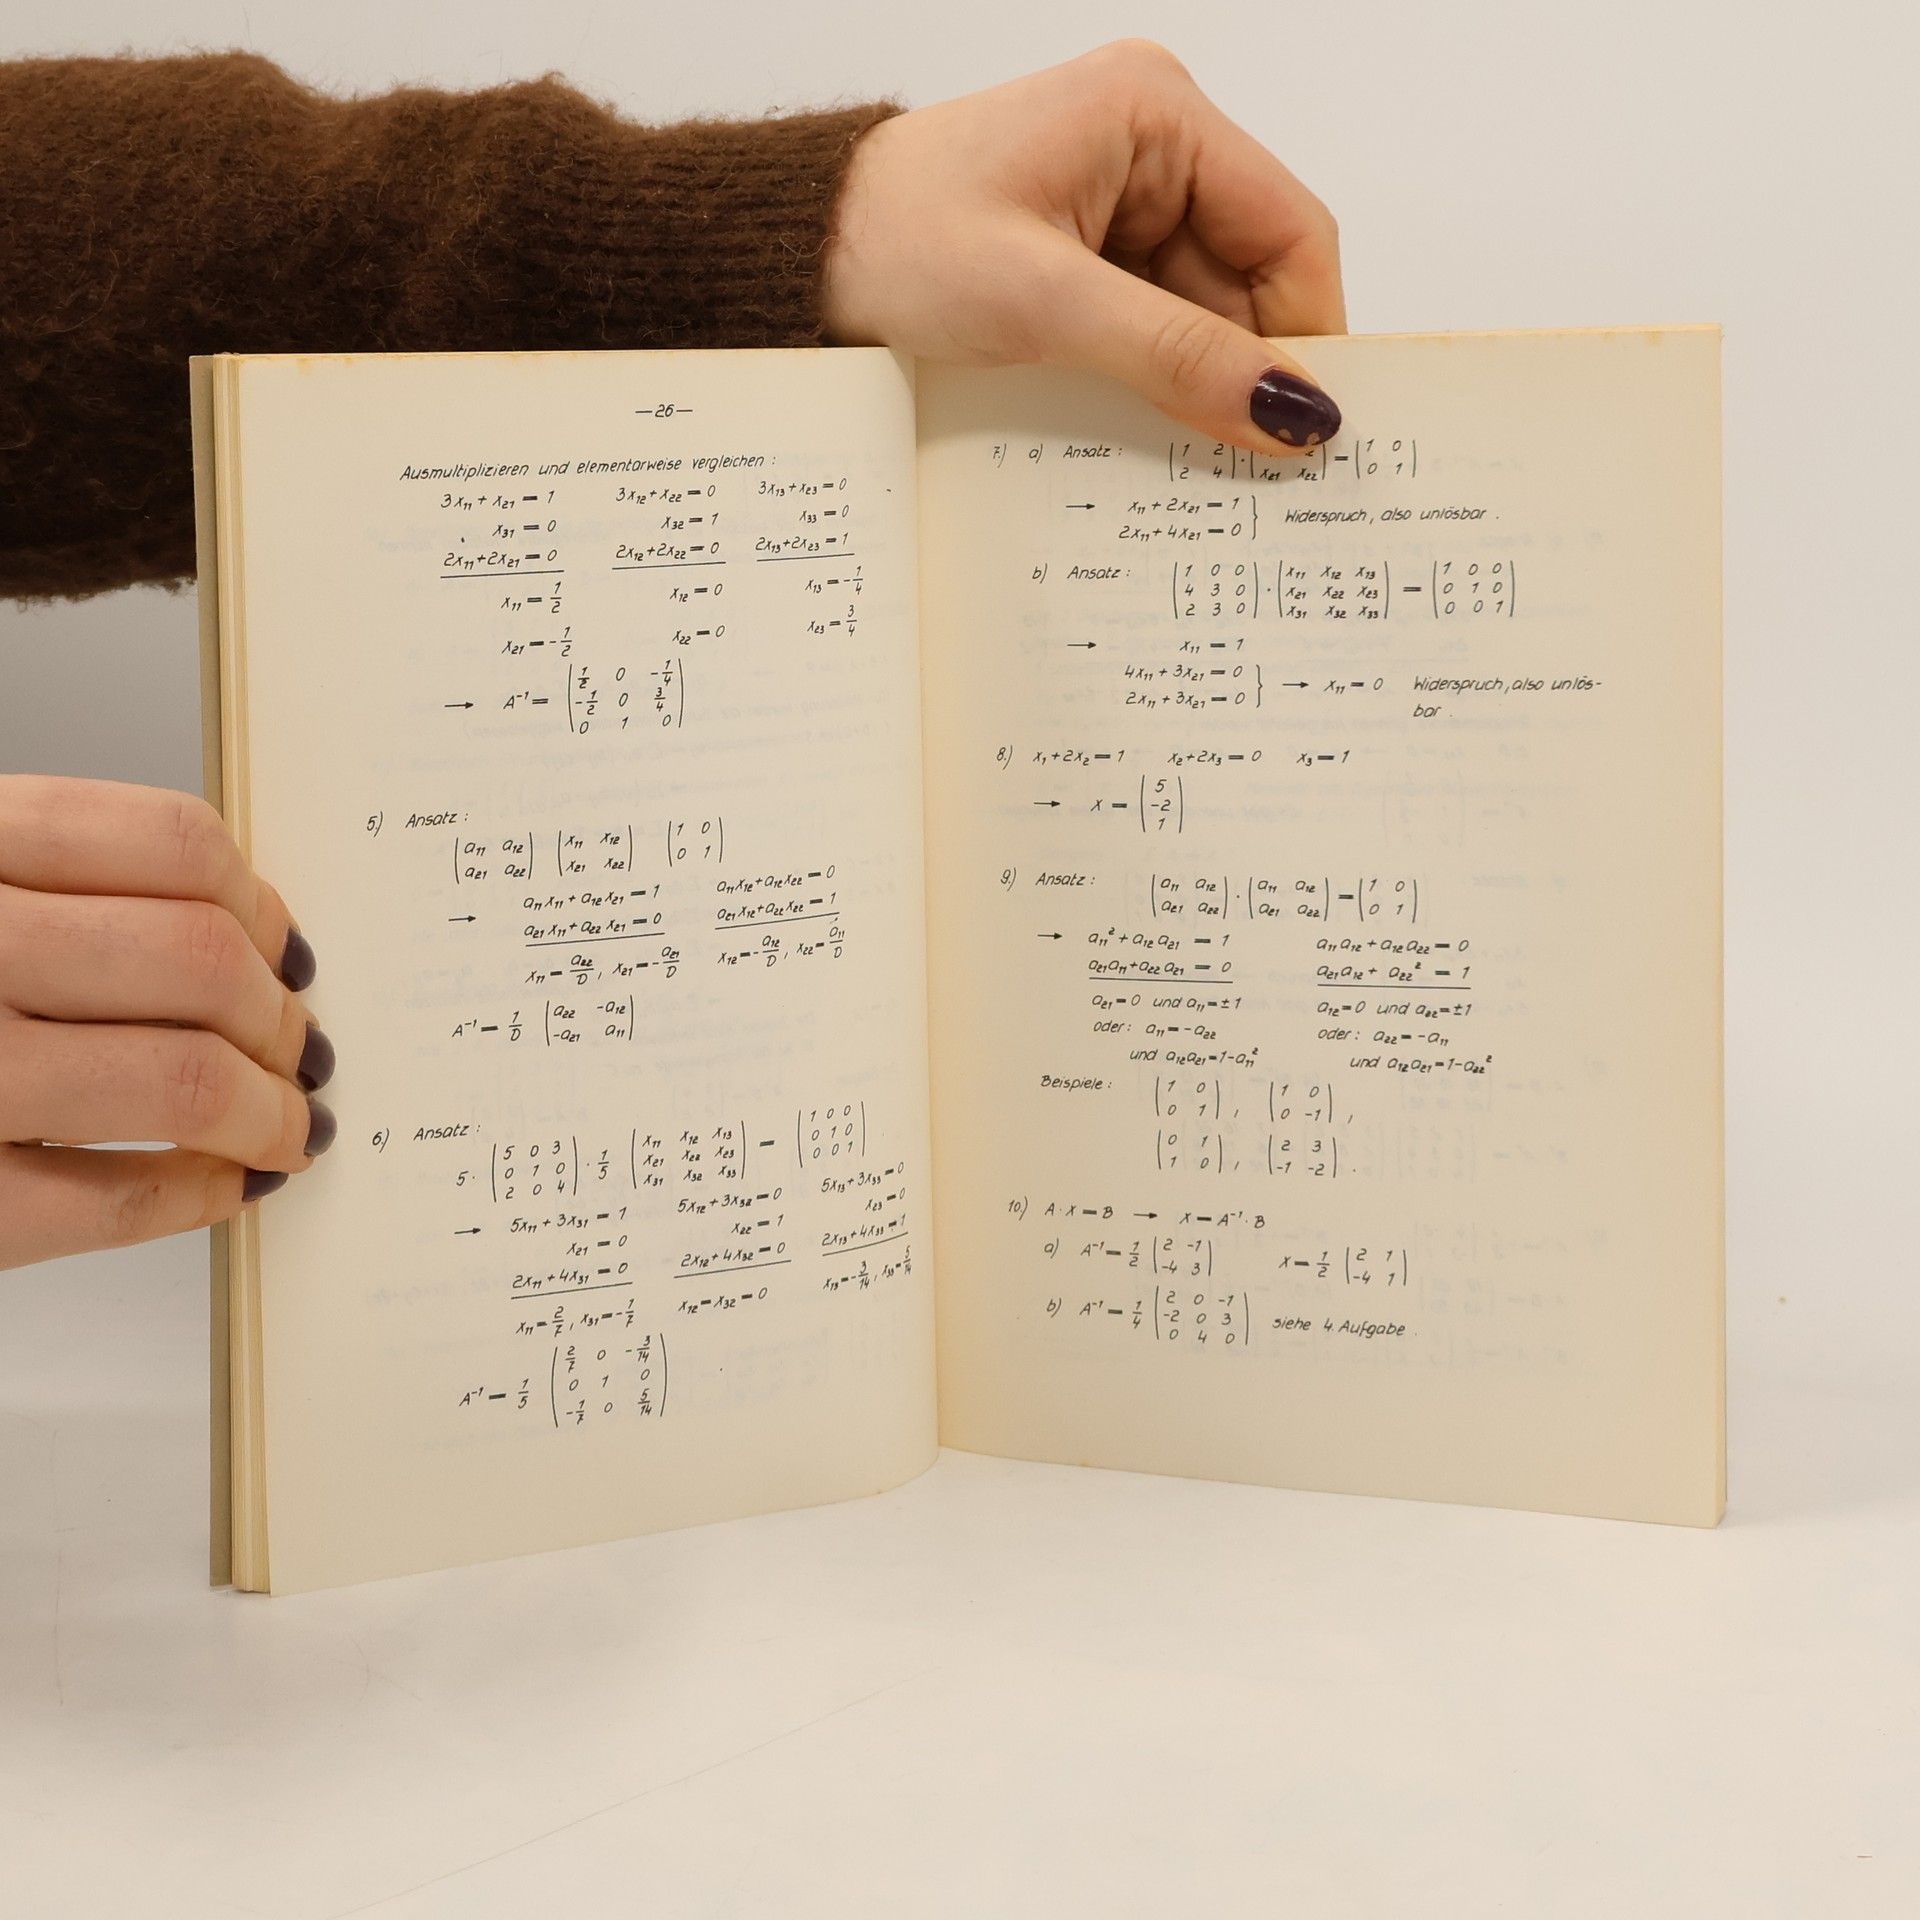 —26—
Ausmultiplizieren und elementarweise vergleichen :
3x₁₁ + x₂₁ = 1 3x₁₂ + x₂₂ = 0 3x₁₃ + x₂₃ = 0
x₃₁ = 0 x₃₂ = 1 x₃₃ = 0
2x₁₁ + 2x₂₁ = 0 2x₁₂ + 2x₂₂ = 0 2x₁₃ + 2x₂₃ = 1
x₁₁ = 1/2 x₁₂ = 0 x₁₃ = -1/4
x₂₁ = -1/2 x₂₂ = 0 x₂₃ = 3/4
1/2 0 -1/4
→ A⁻¹ = -1/2 0 3/4
0 1 0
5.) Ansatz :
a₁₁ a₁₂ x₁₁ x₁₂ 1 0
a₂₁ a₂₂ x₂₁ x₂₂ 0 1
→ a₁₁x₁₁ + a₁₂x₂₁ = 1 a₁₁x₁₂ + a₁₂x₂₂ = 0
a₂₁x₁₁ + a₂₂x₂₁ = 0 a₂₁x₁₂ + a₂₂x₂₂ = 1
x₁₁ = a₂₂/D , x₂₁ = -a₂₁/D x₁₂ = -a₁₂/D , x₂₂ = a₁₁/D
A⁻¹ = 1/D a₂₂ -a₁₂
-a₂₁ a₁₁
6.) Ansatz :
5 0 3 x₁₁ x₁₂ x₁₃ 1 0 0
5 · 0 1 0 · 1/5 x₂₁ x₂₂ x₂₃ = 0 1 0
2 0 4 x₃₁ x₃₂ x₃₃ 0 0 1
→ 5x₁₁ + 3x₃₁ = 1 5x₁₂ + 3x₃₂ = 0 5x₁₃ + 3x₃₃ = 0
x₂₁ = 0 x₂₂ = 1 x₂₃ = 0
2x₁₁ + 4x₃₁ = 0 2x₁₂ + 4x₃₂ = 0 2x₁₃ + 4x₃₃ = 1
x₁₁ = 2/7 , x₃₁ = -1/7 x₁₂ = x₃₂ = 0 x₁₃ = -3/14 , x₃₃ = 5/14
2/7 0 -3/14
A⁻¹ = 1/5 0 1 0
-1/7 0 5/14
7.) a) Ansatz : 1 2 · = 1 0
2 4 x₂₁ x₂₂ 0 1
→ x₁₁ + 2x₂₁ = 1
2x₁₁ + 4x₂₁ = 0 } Widerspruch, also unlösbar .
b) Ansatz : 1 0 0 x₁₁ x₁₂ x₁₃ 1 0 0
4 3 0 · x₂₁ x₂₂ x₂₃ = 0 1 0
2 3 0 x₃₁ x₃₂ x₃₃ 0 0 1
→ x₁₁ = 1
4x₁₁ + 3x₂₁ = 0
2x₁₁ + 3x₂₁ = 0 } → x₁₁ = 0 Widerspruch, also unlös-
bar .
8.) x₁ + 2x₂ = 1 x₂ + 2x₃ = 0 x₃ = 1
5
→ x = -2
1
9.) Ansatz : a₁₁ a₁₂ · a₁₁ a₁₂ = 1 0
a₂₁ a₂₂ a₂₁ a₂₂ 0 1
→ a₁₁² + a₁₂a₂₁ = 1 a₁₁a₁₂ + a₁₂a₂₂ = 0
a₂₁a₁₁ + a₂₂a₂₁ = 0 a₂₁a₁₂ + a₂₂² = 1
a₂₁ = 0 und a₁₁ = ±1 a₁₂ = 0 und a₂₂ = ±1
oder : a₁₁ = -a₂₂ oder : a₂₂ = -a₁₁
und a₁₂a₂₁ = 1-a₁₁² und a₁₂a₂₁ = 1-a₂₂²
Beispiele : 1 0 1 0
0 1 , 0 -1 ,
0 1 2 3
1 0 , -1 -2 .
10.) A · X = B → X = A⁻¹ · B
a) A⁻¹ = 1/2 2 -1 X = 1/2 2 1
-4 3 -4 1
b) A⁻¹ = 1/4 2 0 -1
-2 0 3 siehe 4. Aufgabe .
0 4 0